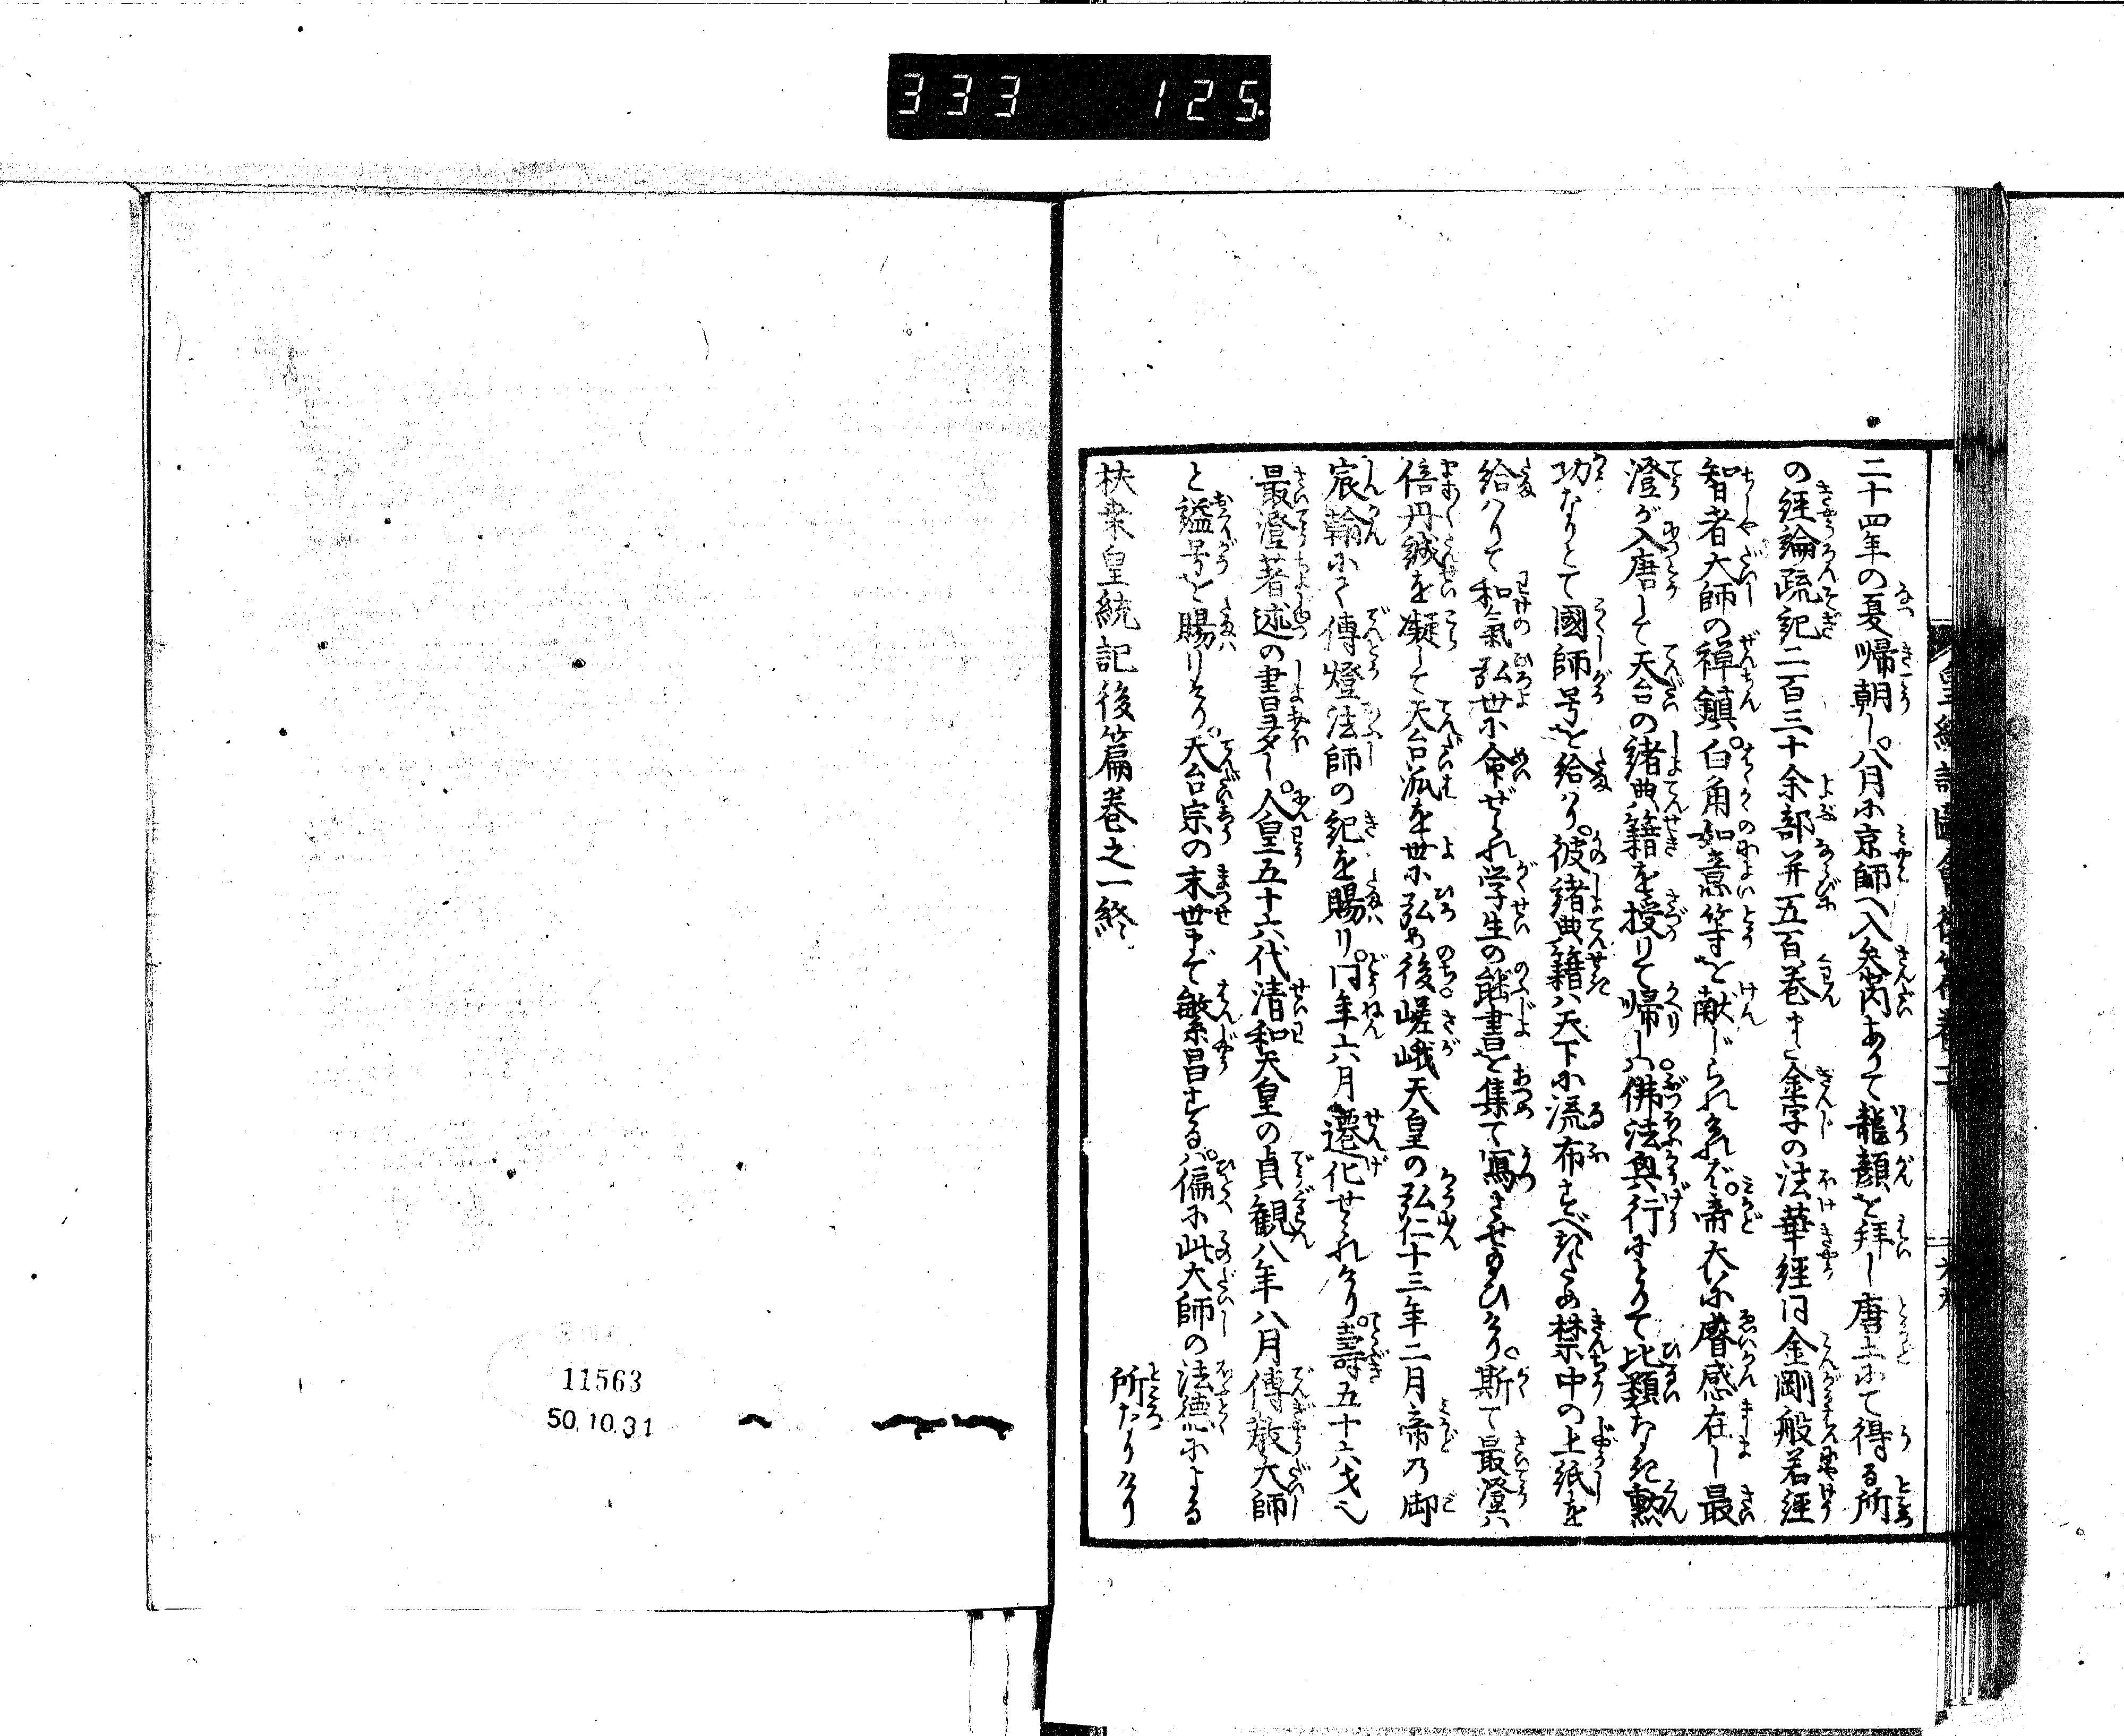 333 125.
二十四年の夏帰朝し。八月に京師へ入参内ありて龍顔を拝し唐土にて得る所
の経論疏記二百三十余部并五百巻また金字の法華経同金剛般若経
智者大師の禅鎮。白角如意等を献じられければ。帝大に睿感在し最
澄が入唐して天台の諸典籍を授りて帰しハ。佛法興行にとりて比類なき勲
功なりとて國師号を給ハり。彼諸典籍ハ天下に流布すべきため禁中の上紙を
給ハりて和氣弘世に命ぜられ学生の能書を集て寫させ給ひけり。斯て最澄ハ
倍丹誠を凝して天台派を世に弘め後。嵯峨天皇の弘仁十三年二月帝の御
宸翰にて傳燈法師の記を賜り。同年六月遷化せられけり。壽五十六才也
最澄著述の書多し。人皇五十六代清和天皇の貞観八年八月傳教大師
と謚号を賜りけり。天台宗の末世まで繁昌するハ。偏に此大師の法徳による
所たりけり
扶桑皇統記後篇巻之一終
11563
50.10.31